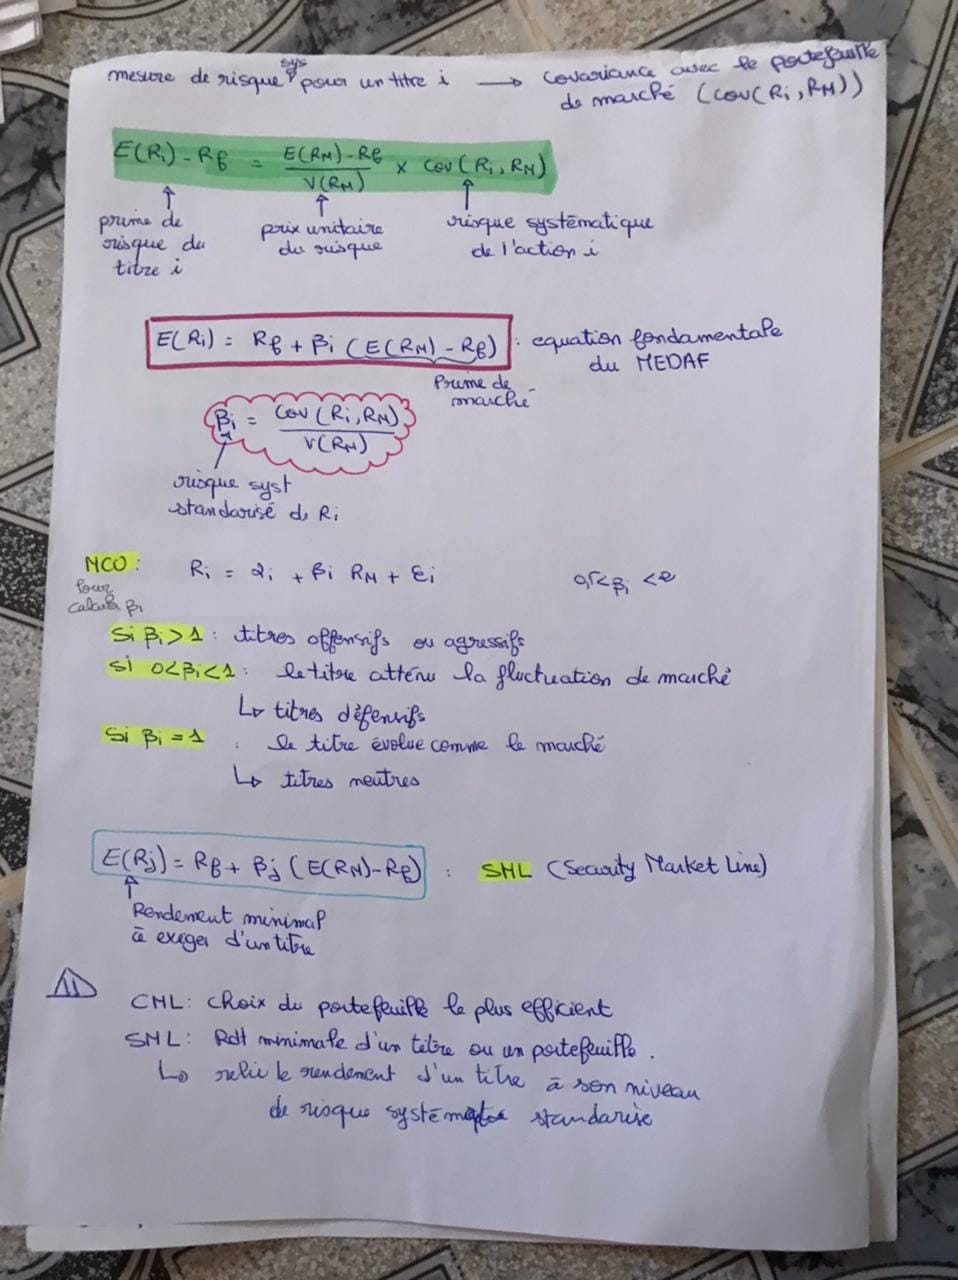 mesure de risque sys pour un titre i → covariance avec le portefeuille
de marché (cov(Ri, RM))
E(Ri) - Rf = (E(RM) - Rf) / V(RM) × Cov(Ri, RM)
prime de risque du titre i
prix unitaire du risque
risque systématique de l'action i
E(Ri) = Rf + βi (E(RM) - Rf) : equation fondamentale
du MEDAF
Prime de
marché
βi = Cov(Ri, RM) / V(RM)
risque syst
standarisé de Ri
MCO : Ri = αi + βi RM + εi 0,5<βi<2
Pour
calculer βi
Si βi > 1 : titres offensifs ou agressifs
si 0<βi<1 : le titre atténu la fluctuation de marché
↳ titres défensifs
Si βi = 1 : le titre évolue comme le marché
↳ titres neutres
E(Rj) = Rf + βj (E(RM) - Rf) : SML (Security Market Line)
Rendement minimal
à exiger d'un titre
CML : choix du portefeuille le plus efficient
SML : Rdt minimale d'un titre ou un portefeuille.
↳ relie le rendement d'un titre à son niveau
de risque systématique standarisé